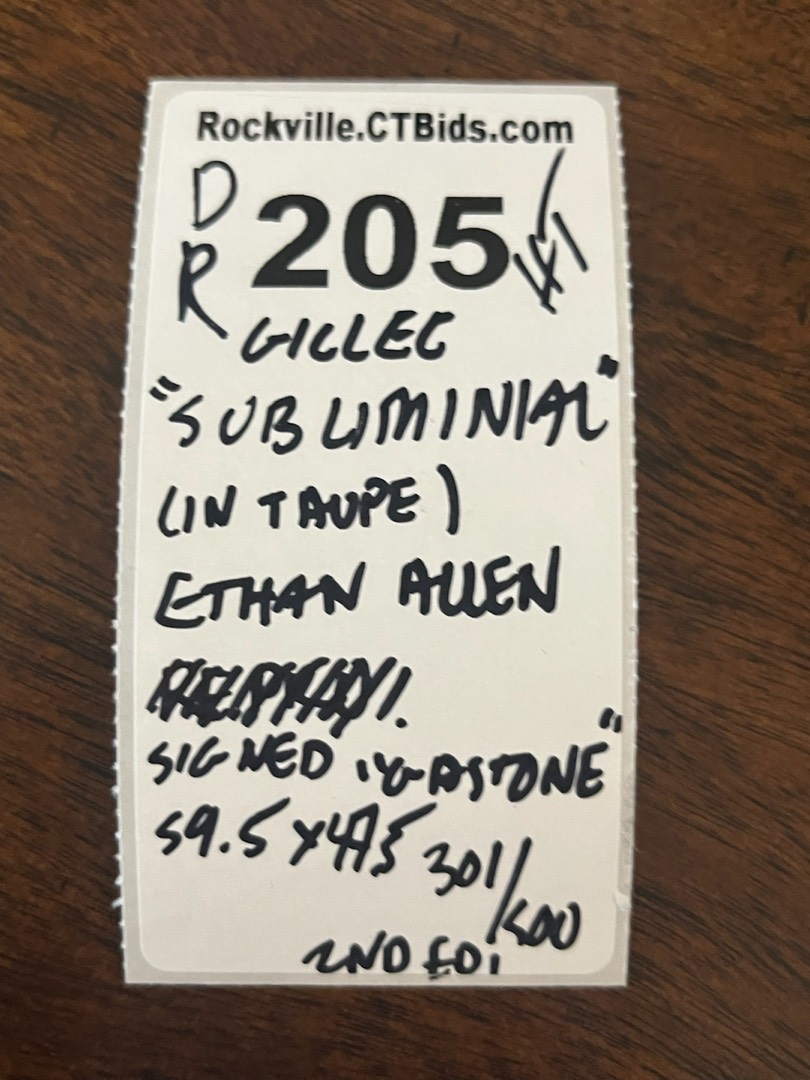 Rockville.CTBids.com
D
R
205
GICLEE
"SUBLIMINIAL"
(IN TAUPE)
ETHAN ALLEN
SIGNED
59.5 X 301/500
2ND EDI